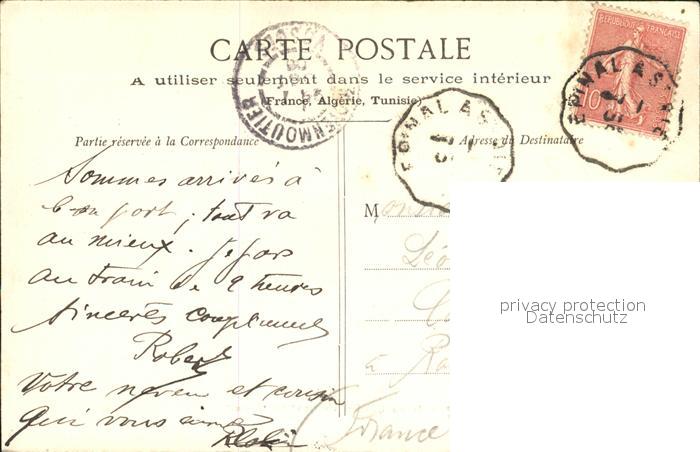 CARTE POSTALE
A utiliser seulement dans le service intérieur
(France, Algérie, Tunisie)
Partie réservée à la Correspondance
Adresse du Destinataire
REPUBLIQUE FRANÇAISE
10
EPINAL A S
EPINAL A S
MOUTIER
Sommes arrivés à
bon port, tout va
au mieux. Je pars
au train de 9 heures
sincères compliments
Robert
Votre neveu et cousin
qui vous aime
Monsi
Léo
à
France
privacy protection
Datenschutz